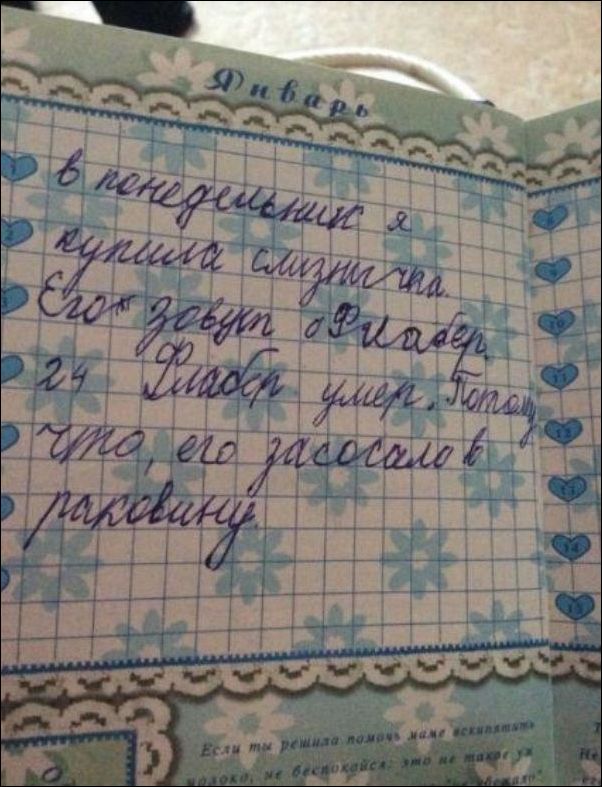 Январь
в понедельник я
купила слизнычка.
Его зовут Флабер
24 Флабер умер. Потому
что, его засосало в
раковину.
Если ты решила помочь маме вскипятить
молоко, не беспокойся: это не такое уж
"не убежало"